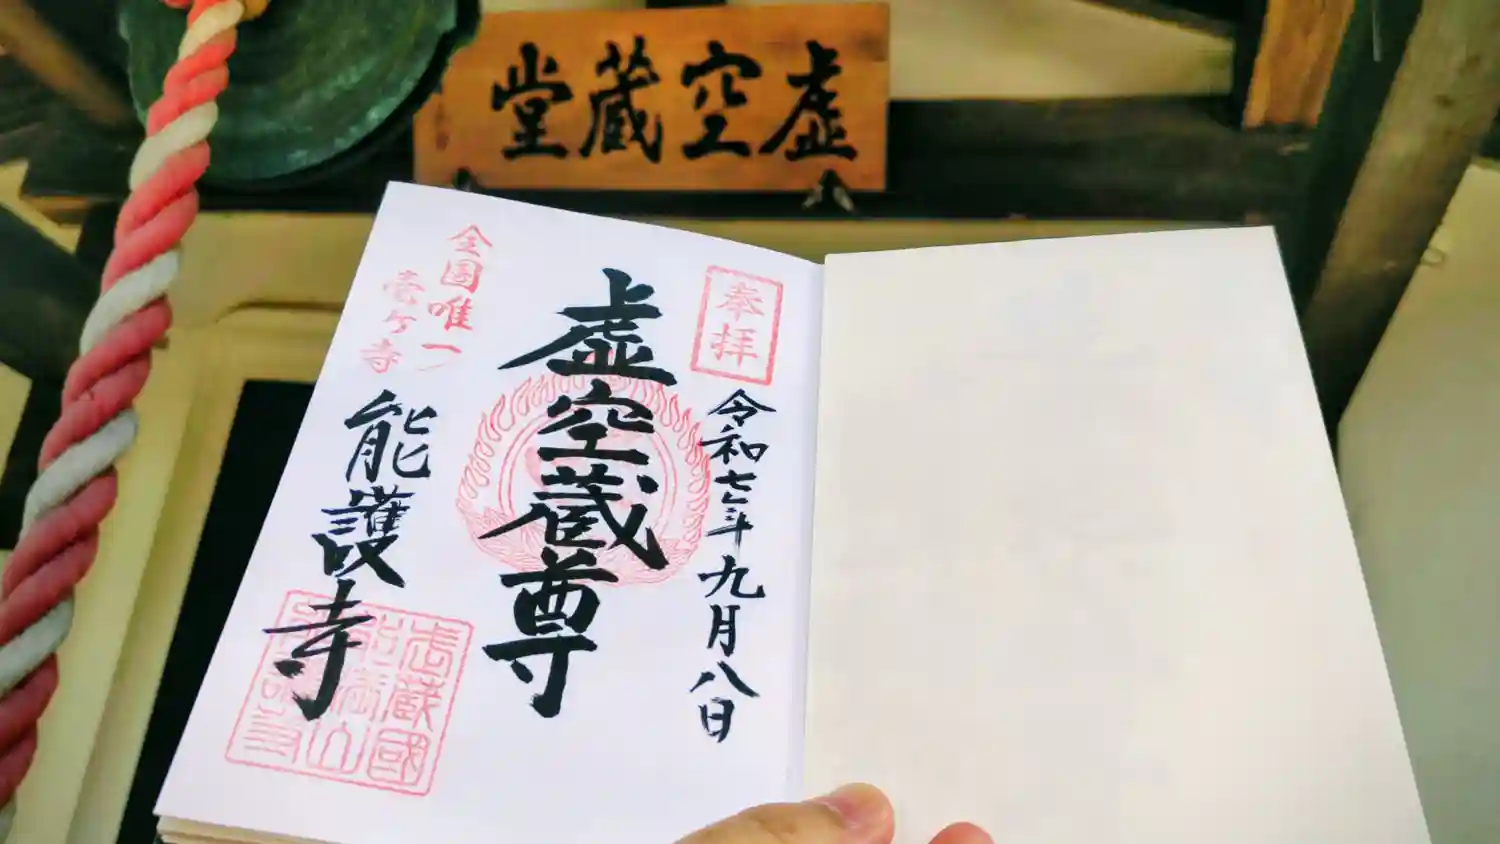 虚空蔵堂
奉拝
令和七年九月八日
虚空蔵尊
全国唯一
壱ヶ寺
能護寺
武蔵國